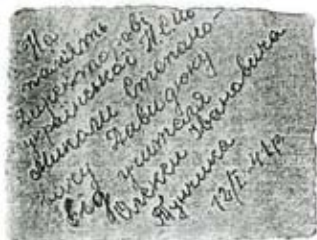 На
память
директорові
української НСШ
Михайлу Степано-
вичу Давидюку
Від учителя
Олекси Івановича
Тунчика
12/I-41р